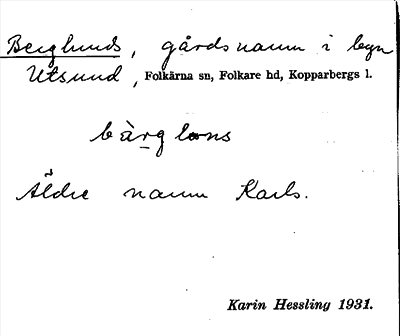 Berglunds, gårdsnamn i byn
Utsund, Folkärna sn, Folkare hd, Kopparbergs l.
bàrglons
Äldre namn Karls.
Karin Hessling 1931.